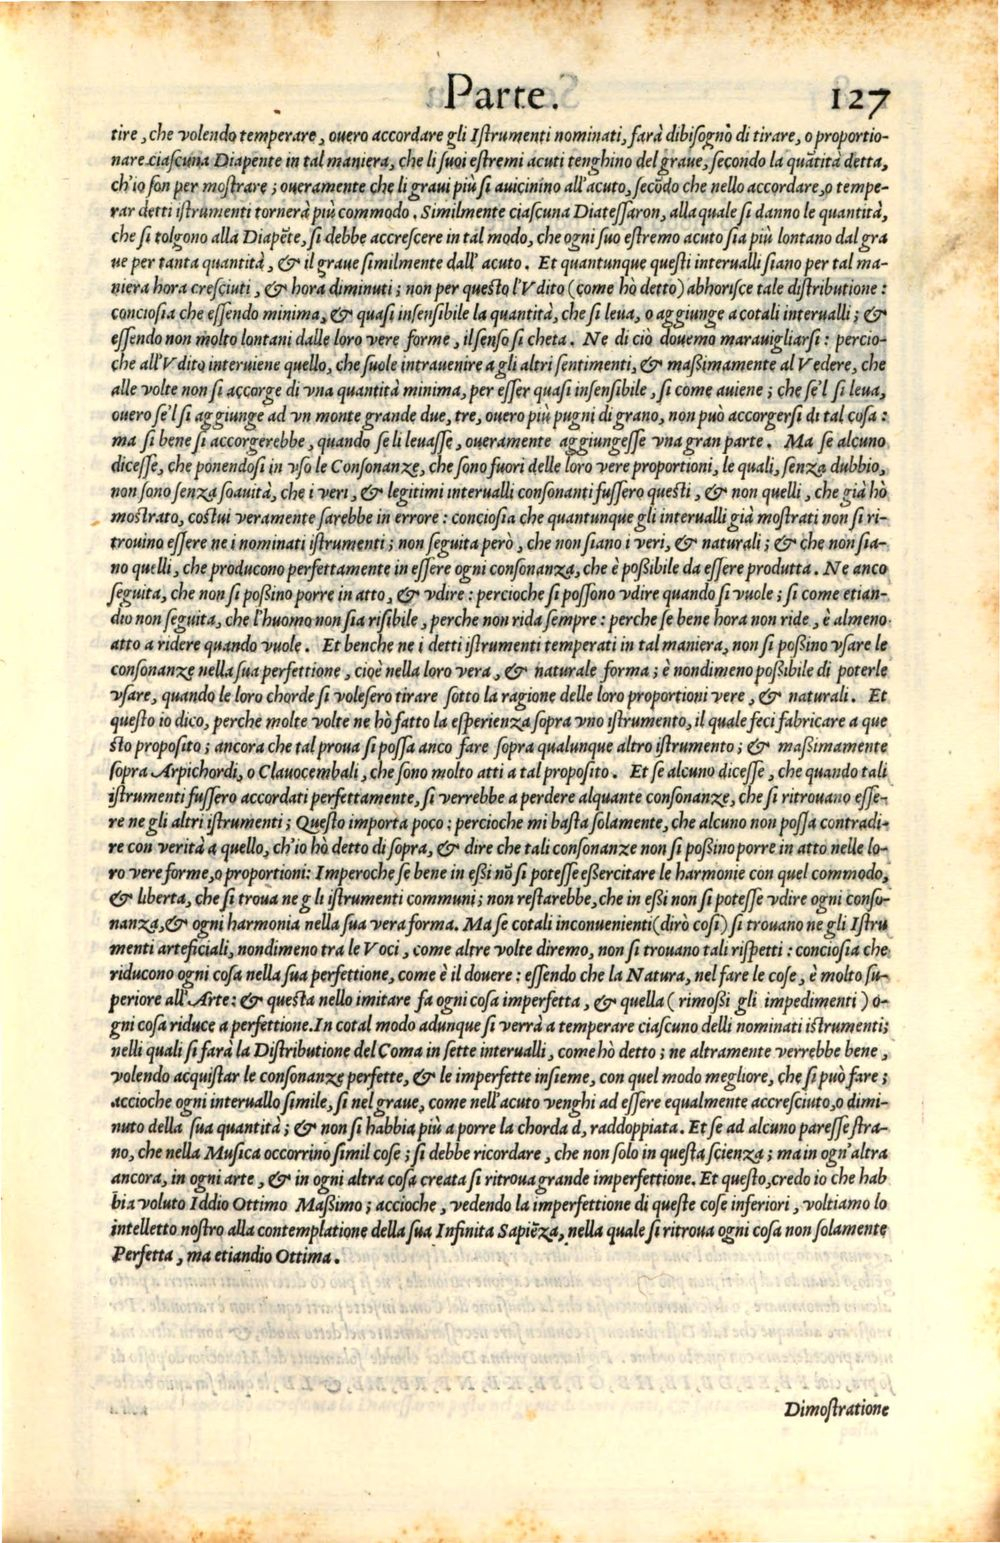 Parte. 127
tire, che volendo temperare, ouero accordare gli Iſtrumenti nominati, farà dibiſogno di tirare, o proportio-
nare ciaſcuna Diapente in tal maniera, che li ſuoi eſtremi acuti tenghino del graue, ſecondo la quātità detta,
ch'io ſon per moſtrare; oueramente che li graui più ſi auicinino all'acuto, ſecōdo che nello accordare, o tempe-
rar detti iſtrumenti tornerà più commodo. Similmente ciaſcuna Diateſſaron, alla quale ſi danno le quantità,
che ſi tolgono alla Diapēte, ſi debbe accreſcere in tal modo, che ogni ſuo eſtremo acuto ſia più lontano dal gra
ue per tanta quantità, & il graue ſimilmente dall' acuto. Et quantunque queſti interualli ſiano per tal ma-
niera hora creſciuti, & hora diminuti; non per queſto l'Vdito (come hò detto) abhoriſce tale diſtributione:
concioſia che eſſendo minima, & quaſi inſenſibile la quantità, che ſi leua, o aggiunge a cotali interualli; &
eſſendo non molto lontani dalle loro vere forme, il ſenſo ſi cheta. Ne di ciò douemo marauigliarſi: percio-
che all'Vdito interuiene quello, che ſuole intrauenire a gli altri ſentimenti, & maßimamente al Vedere, che
alle volte non ſi accorge di vna quantità minima, per eſſer quaſi inſenſibile, ſi come auiene; che ſe'l ſi leua,
ouero ſe'l ſi aggiunge ad vn monte grande due, tre, ouero più pugni di grano, non può accorgerſi di tal coſa:
ma ſi bene ſi accorgerebbe, quando ſe li leuaſſe, oueramente aggiungeſſe vna gran parte. Ma ſe alcuno
diceſſe, che ponendoſi in vſo le Conſonanze, che ſono fuori delle loro vere proportioni, le quali, ſenza dubbio,
non ſono ſenza ſoauità, che i veri, & legitimi interualli conſonanti fuſſero queſti, & non quelli, che già hò
moſtrato, coſtui veramente ſarebbe in errore: concioſia che quantunque gli interualli già moſtrati non ſi ri-
trouino eſſere ne i nominati iſtrumenti; non ſeguita però, che non ſiano i veri, & naturali; & che non ſia-
no quelli, che producono perfettamente in eſſere ogni conſonanza, che è poßibile da eſſere produtta. Ne anco
ſeguita, che non ſi poßino porre in atto, & vdire: percioche ſi poſſono vdire quando ſi vuole; ſi come etian-
dio non ſeguita, che l'huomo non ſia riſibile, perche non rida ſempre: perche ſe bene hora non ride, è almeno
atto a ridere quando vuole. Et benche ne i detti iſtrumenti temperati in tal maniera, non ſi poßino vſare le
conſonanze nella ſua perfettione, cioè nella loro vera, & naturale forma; è nondimeno poßibile di poterle
vſare, quando le loro chorde ſi voleſero tirare ſotto la ragione delle loro proportioni vere, & naturali. Et
queſto io dico, perche molte volte ne hò fatto la eſperienza ſopra vno iſtrumento, il quale feci fabricare a que
ſto propoſito; ancora che tal proua ſi poſſa anco fare ſopra qualunque altro iſtrumento; & maßimamente
ſopra Arpichordi, o Clauocembali, che ſono molto atti a tal propoſito. Et ſe alcuno diceſſe, che quando tali
iſtrumenti fuſſero accordati perfettamente, ſi verrebbe a perdere alquante conſonanze, che ſi ritrouano eſſe-
re ne gli altri iſtrumenti; Queſto importa poco: percioche mi baſta ſolamente, che alcuno non poſſa contradi-
re con verità a quello, ch'io hò detto di ſopra, & dire che tali conſonanze non ſi poßino porre in atto nelle lo-
ro vere forme, o proportioni: Imperoche ſe bene in eßi nō ſi poteſſe eſſercitare le harmonie con quel commodo,
& liberta, che ſi troua ne gli iſtrumenti communi; non reſtarebbe, che in eßi non ſi poteſſe vdire ogni conſo-
nanza, & ogni harmonia nella ſua vera forma. Ma ſe cotali inconuenienti (dirò coſi) ſi trouano ne gli Iſtru
menti arteficiali, nondimeno tra le Voci, come altre volte diremo, non ſi trouano tali riſpetti: concioſia che
riducono ogni coſa nella ſua perfettione, come è il douere: eſſendo che la Natura, nel fare le coſe, è molto ſu-
periore all'Arte: & queſta nello imitare fa ogni coſa imperfetta, & quella (rimoßi gli impedimenti) o-
gni coſa riduce a perfettione. In cotal modo adunque ſi verrà a temperare ciaſcuno delli nominati iſtrumenti;
nelli quali ſi farà la Diſtributione del Coma in ſette interualli, come hò detto; ne altramente verrebbe bene,
volendo acquiſtar le conſonanze perfette, & le imperfette inſieme, con quel modo megliore, che ſi può fare;
accioche ogni interuallo ſimile, ſi nel graue, come nell'acuto venghi ad eſſere equalmente accreſciuto, o dimi-
nuto della ſua quantità; & non ſi habbia più a porre la chorda d, raddoppiata. Et ſe ad alcuno pareſſe ſtra-
no, che nella Muſica occorrino ſimil coſe; ſi debbe ricordare, che non ſolo in queſta ſcienza; ma in ogn'altra
ancora, in ogni arte, & in ogni altra coſa creata ſi ritroua grande imperfettione. Et queſto, credo io che hab
bia voluto Iddio Ottimo Maßimo; accioche, vedendo la imperfettione di queſte coſe inferiori, voltiamo lo
intelletto noſtro alla contemplatione della ſua Infinita Sapiēza, nella quale ſi ritroua ogni coſa non ſolamente
Perfetta, ma etiandio Ottima.
Dimoſtratione